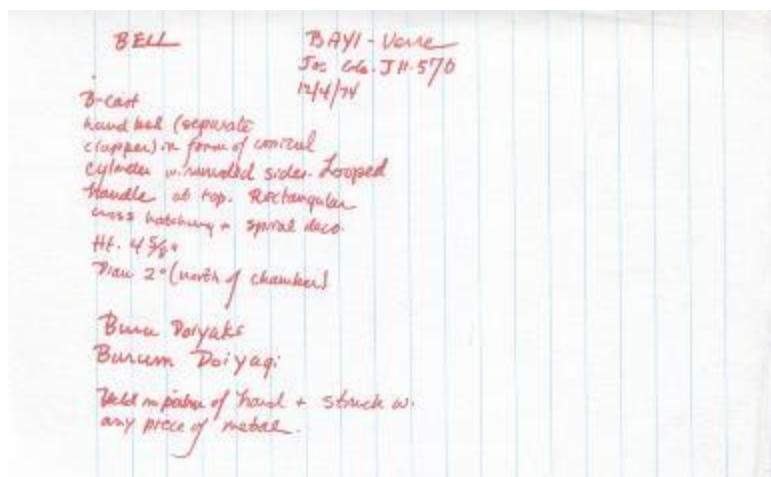 BELL
BAYI-Verre
Jos Mus. JH.570
12/4/74
B-cast
hand bell (separate
clapper) in form of conical
cylinder w. rounded sides. Looped
Handle at top. Rectangular
cross hatching + spiral deco.
Ht. 4 5/8"
Diam 2" (mouth of chamber)
Buru Doiyaks
Burum Doiyagi
Held in palm of hand + struck w.
any piece of metal.